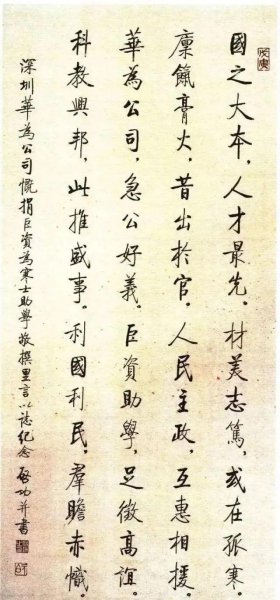 國之大本，人才最先。材美志篤，或在孤寒。
廩餼膏火，昔出於官。人民主政，互惠相援。
華為公司，急公好義。巨資助學，足徵高誼。
科教興邦，此推盛事。利國利民，羣瞻赤幟。
深圳華為公司慨捐巨資為寒士助學敬撰里言以誌紀念 啟功并書